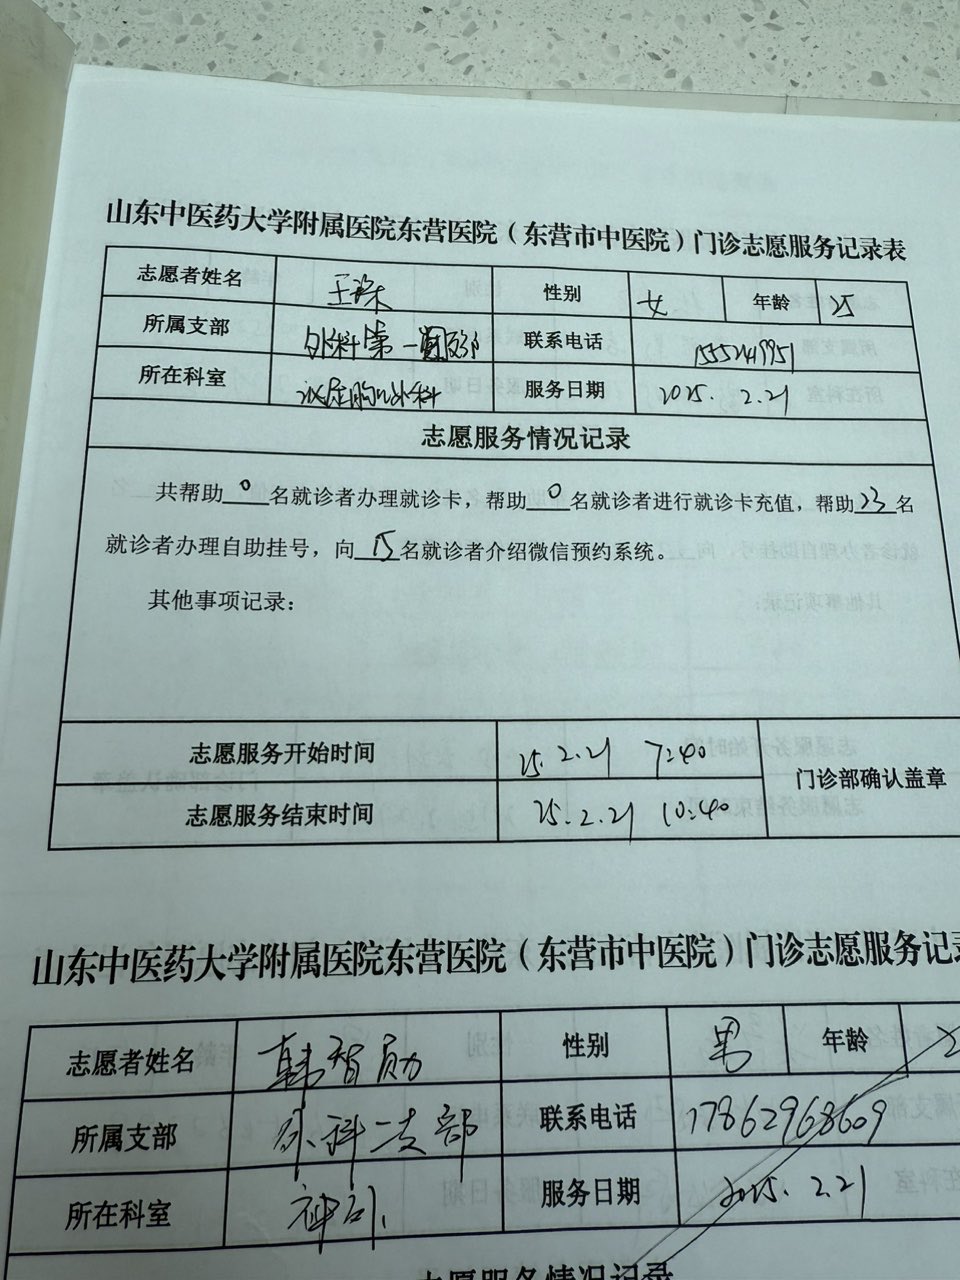 山东中医药大学附属医院东营医院（东营市中医院）门诊志愿服务记录表
志愿者姓名 王 性别 女 年龄 25
所属支部 外科第一支部 联系电话
所在科室 泌尿胸外科 服务日期 2025.2.21
志愿服务情况记录
共帮助0名就诊者办理就诊卡，帮助0名就诊者进行就诊卡充值，帮助23名
就诊者办理自助挂号，向15名就诊者介绍微信预约系统。
其他事项记录：
志愿服务开始时间 25.2.21 7:40
门诊部确认盖章
志愿服务结束时间 25.2.21 10:40
山东中医药大学附属医院东营医院（东营市中医院）门诊志愿服务记
志愿者姓名 韩智勋 性别 男 年龄 2
所属支部 外科二支部 联系电话 17862968609
所在科室 服务日期 2025.2.21
志愿服务情况记录